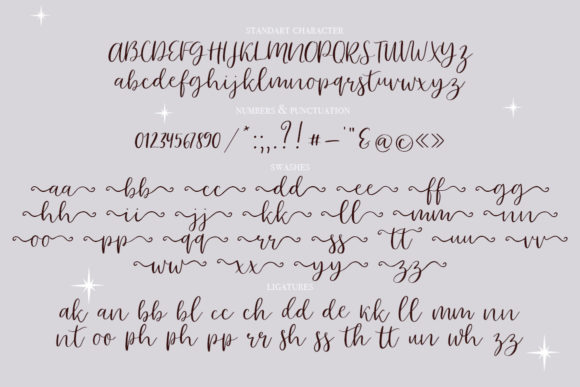 STANDART CHARACTER
ABCDEFGHIJKLMNOPQRSTUVWXYZ
abcdefghijklmnopqrstuvwxyz
NUMBERS & PUNCTUATION
01234567890 / * : ; , . ? ! # – ' " & @ © « »
SWASHES
aa bb cc dd ee ff gg
hh ii jj kk ll mm nn
oo pp qq rr ss tt uu vv
ww xx yy zz
LIGATURES
ak an bb bl cc ch dd de kk ll mm nn
nt oo ph ph pp rr sh ss th tt un wh zz